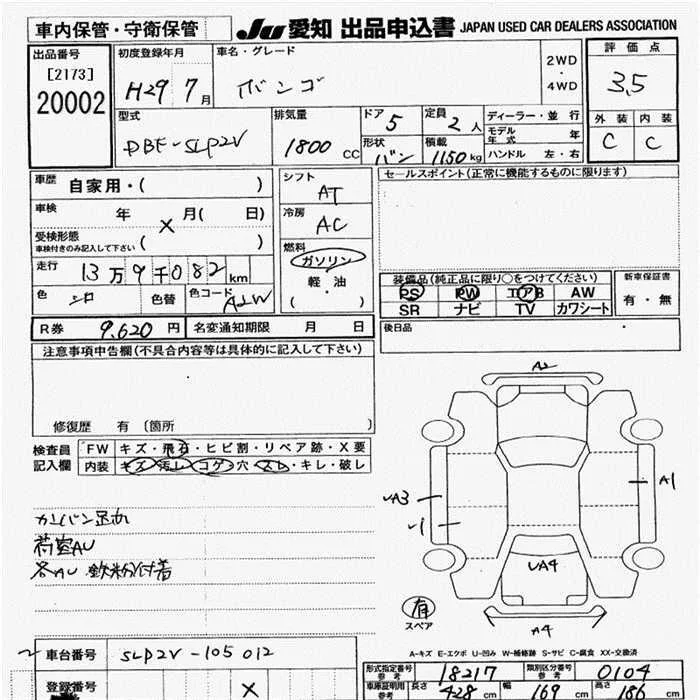 車内保管・守衛保管
JU 愛知 出品申込書 JAPAN USED CAR DEALERS ASSOCIATION
出品番号
[2173]
20002
初度登録年月
H29 7月
車名・グレード
バンゴ
2WD
・
4WD
評価点
3.5
外装 内装
C C
型式
DBF-SLP2V
排気量
1800 CC
ドア 5
形状 バン
定員 2人
積載 1150kg
ディーラー・並行
モデル年式 年
ハンドル 左・右
車歴 自家用・( )
車検 年 月( 日)
X
受検形態
車検付きのみ記入して下さい ( )
走行 13万9千082km
色 シロ 色替 色コード A2W
シフト
AT
冷房
AC
燃料
ガソリン
軽・油
( )
セールスポイント(正常に機能するものに限ります)
装備品(純正品に限り○をつけてください)
PS PW エアB AW
SR ナビ TV カワシート
新車保証書
有・無
R券 9,620円 名変通知期限 月 日
後日品
注意事項申告欄(不具合内容等は具体的に記入して下さい)
修復歴 有 〔箇所 〕
検査員記入欄
FW キズ・飛石・ヒビ割・リペア跡・X要
内装 キズ・汚レ・コゲ・穴・スレ・キレ・破レ
カンバン跡有
荷室AU
各AU 鉄粉付着
A2
UA3
A1
UA4
A4
有
スペア
A-キズ E-エクボ U-凹み W-補修跡 S-サビ C-腐食 XX-交換済
車台番号 SLP2V-105012
登録番号 X
形式指定番号 参考 18217
類別区分番号 参考 0104
車庫証明用 参考
長さ 428cm
幅 169cm
高さ 186cm